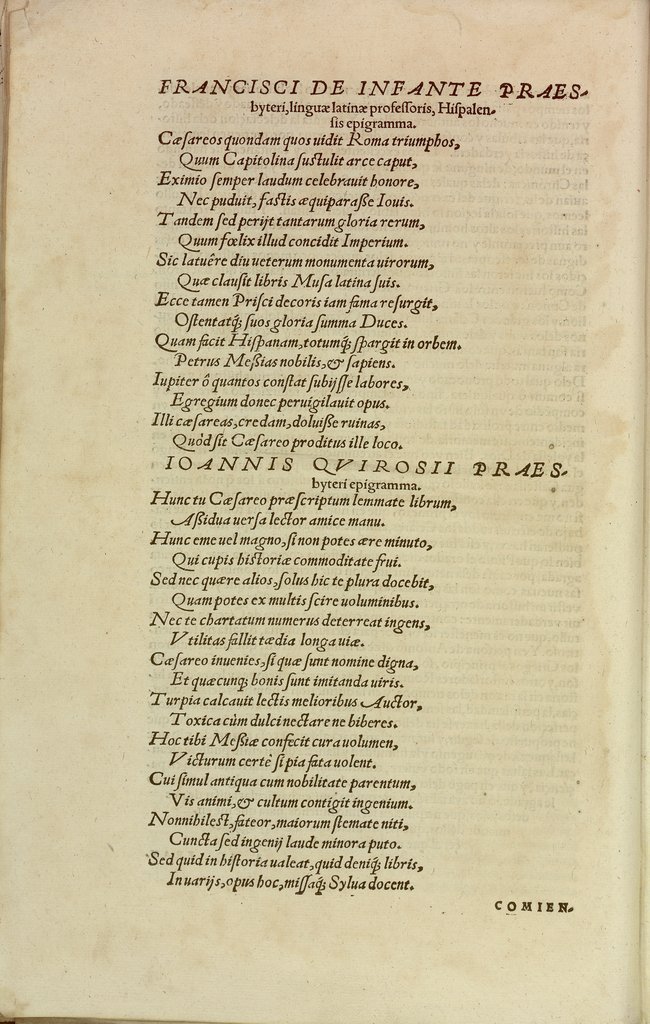 FRANCISCI DE INFANTE PRAES-
byteri, linguæ latinæ professoris, Hispalen-
sis epigramma.
Cæsareos quondam quos uidit Roma triumphos,
Quum Capitolina sustulit arce caput,
Eximio semper laudum celebrauit honore,
Nec puduit, fastis æquiparaße Iouis.
Tandem sed perijt tantarum gloria rerum,
Quum fœlix illud concidit Imperium.
Sic latuêre diu ueterum monumenta uirorum,
Quæ clausit libris Musa latina suis.
Ecce tamen Prisci decoris iam fama resurgit,
Ostentatq; suos gloria summa Duces.
Quam facit Hispanam, totumq; spargit in orbem.
Petrus Meßias nobilis, & sapiens.
Iupiter ô quantos constat subijsse labores,
Egregium donec peruigilauit opus.
Illi cæsareas, credam, doluiße ruinas,
Quòd sit Cæsareo proditus ille loco.
IOANNIS QVIROSII PRAES-
byteri epigramma.
Hunc tu Cæsareo præscriptum lemmate librum,
Aßidua uersa lector amice manu.
Hunc eme uel magno, si non potes ære minuto,
Qui cupis historiæ commoditate frui.
Sed nec quære alios, solus hic te plura docebit,
Quam potes ex multis scire uoluminibus.
Nec te chartatum numerus deterreat ingens,
Vtilitas fallit tædia longa uiæ.
Cæsareo inuenies, si quæ sunt nomine digna,
Et quæcunq; bonis sunt imitanda uiris.
Turpia calcauit lectis melioribus Auctor,
Toxica cùm dulci nectare ne biberes.
Hoc tibi Meßiæ confecit cura uolumen,
Victurum certè si pia fata uolent.
Cui simul antiqua cum nobilitate parentum,
Vis animi, & cultum contigit ingenium.
Nonnihil est, fateor, maiorum stemate niti,
Cuncta sed ingenij laude minora puto.
Sed quid in historia ualeat, quid deniq; libris,
In uarijs, opus hoc, missaq; Sylua docent.
COMIEN-